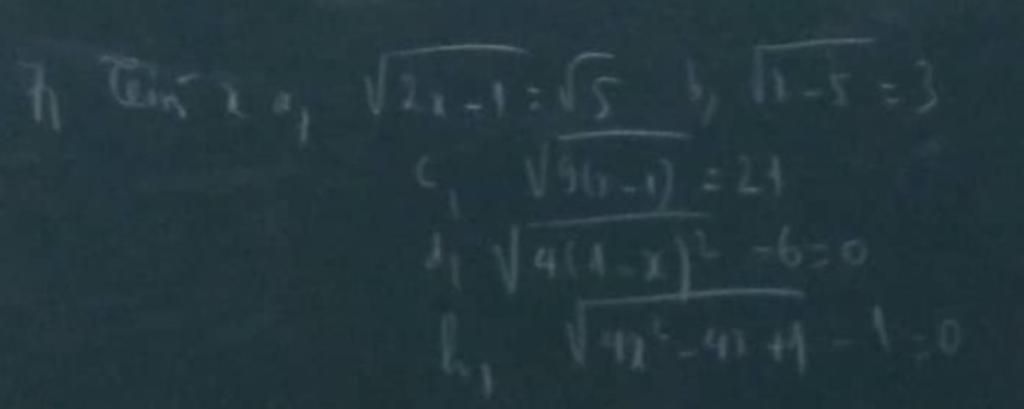 7, Tìm x a, √(2x-1) = √5 b, √(x-5) = 3
c, √(9(x-1)) = 21
d, √(4(1-x)²) - 6 = 0
h, √(4x²-4x+1) - 1 = 0